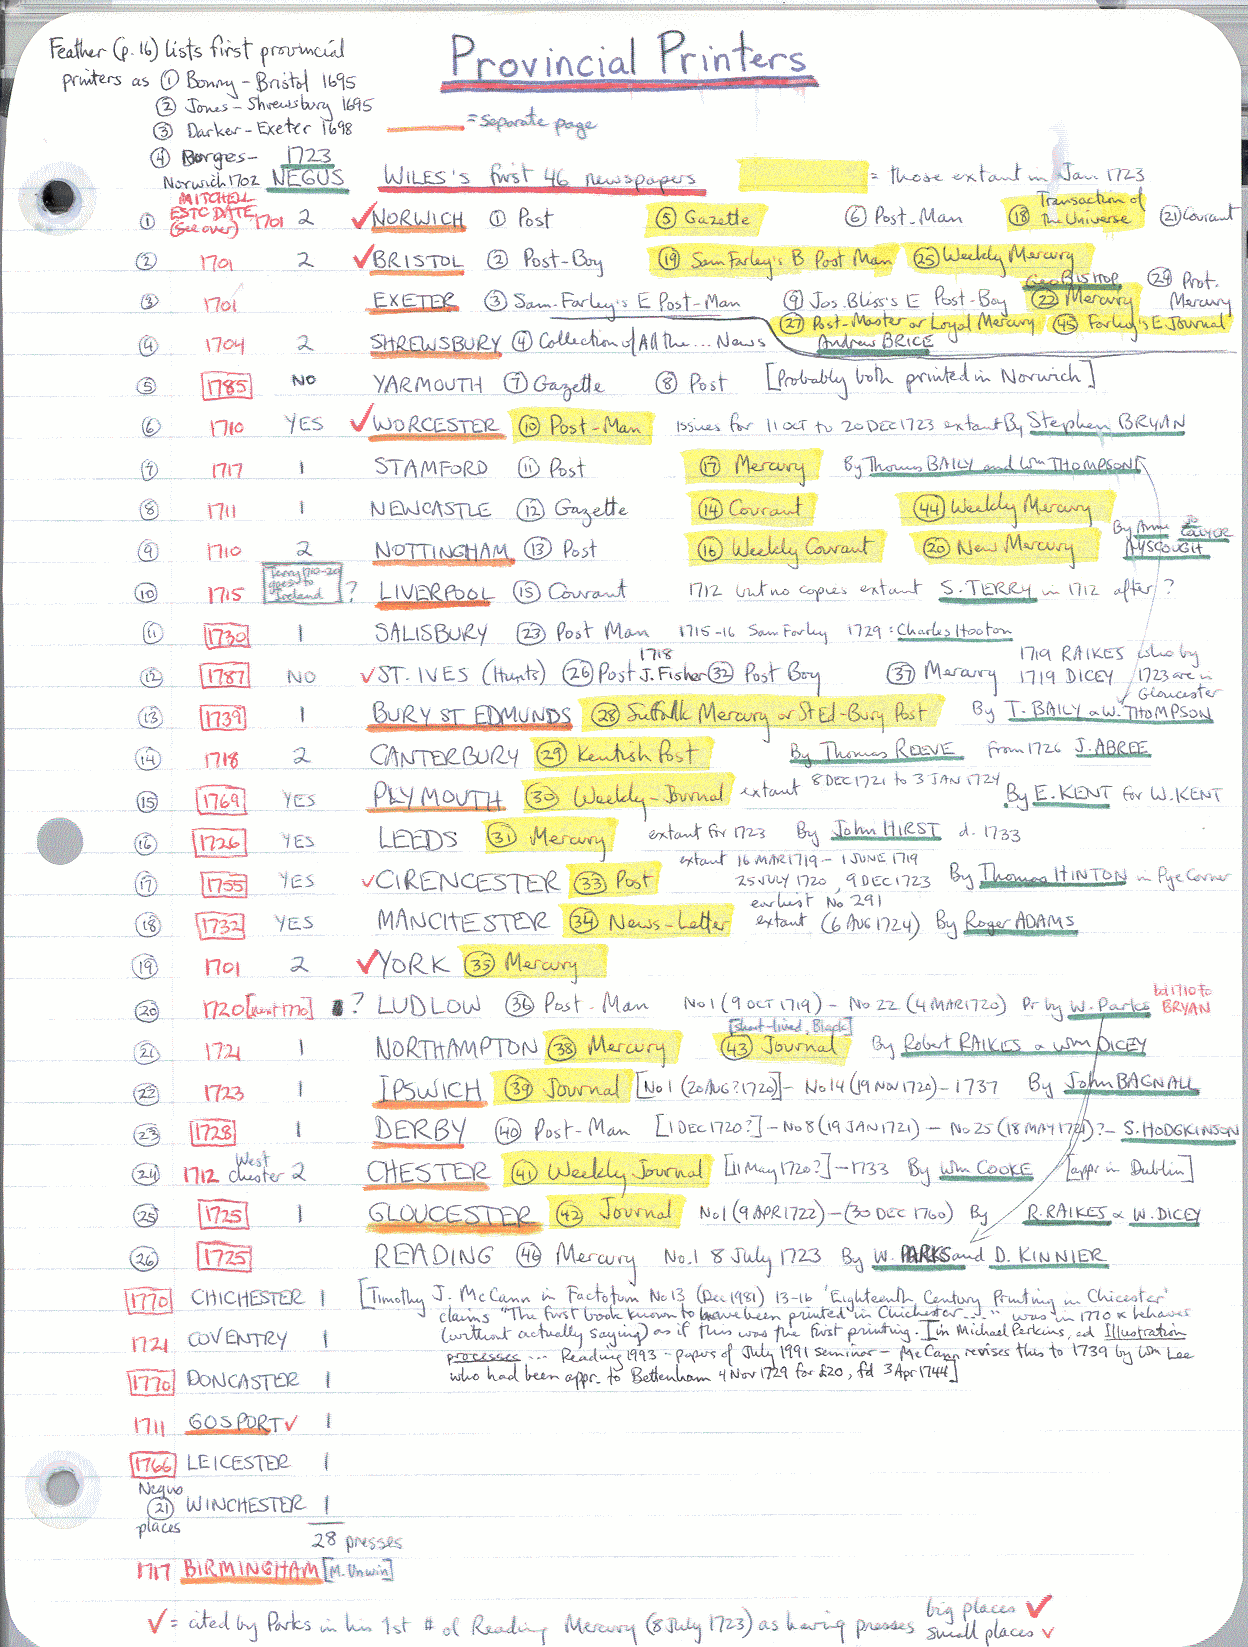 Feather (p.16) lists first provincial
printers as ① Bonny - Bristol 1695
② Jones - Shrewsbury 1695
③ Darker - Exeter 1698
④ Burges - Norwich 1702
Provincial Printers
= separate page
1723
NEGUS
WILES's first 46 newspapers
= those extant in Jan 1723
MITCHELL
ESTC DATE
(See over)
① 1701 2 ✓ NORWICH ① Post ⑤ Gazette ⑥ Post-Man ⑱ Transaction of the Universe ㉑ Courant
② 1701 2 ✓ BRISTOL ② Post-Boy ⑲ Sam Farley's B Post Man ㉕ Weekly Mercury
③ 1701 EXETER ③ Sam. Farley's E Post-Man ⑨ Jos. Bliss's E Post-Boy ㉒ Geo BISHOP Mercury ㉔ Prot. Mercury
㉗ Post-Master or Loyal Mercury ㊺ Farley's E. Journal
Andrew BRICE
④ 1704 2 SHREWSBURY ④ Collection of All the ... News
⑤ 1785 NO YARMOUTH ⑦ Gazette ⑧ Post [Probably both printed in Norwich]
⑥ 1710 YES ✓ WORCESTER ⑩ Post-Man issues for 11 OCT to 20 DEC 1723 extant By Stephen BRYAN
⑦ 1717 1 STAMFORD ⑪ Post ⑰ Mercury By Thomas BAILY and Wm THOMPSON
⑧ 1711 1 NEWCASTLE ⑫ Gazette ⑭ Courant ㊹ Weekly Mercury
⑨ 1710 2 NOTTINGHAM ⑬ Post ⑯ Weekly Courant ⑳ New Mercury By Anne AYSCOUGH
⑩ 1715 Terry 1710-20 goes to Ireland ? LIVERPOOL ⑮ Courant 1712 but no copies extant S. TERRY in 1712 after ?
⑪ 1730 1 SALISBURY ㉓ Post Man 1715-16 Sam Farley 1729: Charles Hooton
⑫ 1787 NO ✓ ST. IVES (Hunts) ㉖ Post 1718 J. Fisher ㉜ Post Boy ㊲ Mercury 1719 RAIKES who by
1719 DICEY 1723 are in Gloucester
⑬ 1739 1 BURY ST EDMUNDS ㉘ Suffolk Mercury or St Ed-Bury Post By T. BAILY & W. THOMPSON
⑭ 1718 2 CANTERBURY ㉙ Kentish Post By Thomas REEVE from 1726 J. ABREE
⑮ 1769 YES PLYMOUTH ㉚ Weekly-Journal extant 8 DEC 1721 to 3 JAN 1724 By E. KENT for W. KENT
⑯ 1726 YES LEEDS ㉛ Mercury extant for 1723 By John HIRST d. 1733
⑰ 1755 YES ✓ CIRENCESTER ㉝ Post extant 16 MAR 1719 - 1 JUNE 1719
25 JULY 1720, 9 DEC 1723 By Thomas HINTON in Pye Corner
⑱ 1732 YES MANCHESTER ㉞ News-Letter earliest No 291
extant (6 AUG 1724) By Roger ADAMS
⑲ 1701 2 ✓ YORK ㉟ Mercury
⑳ 1720 [next 1770] ? LUDLOW ㊱ Post-Man No 1 (9 OCT 1719) - No 22 (4 MAR 1720) Pr by W. Parks bd 1710 to BRYAN
㉑ 1721 1 NORTHAMPTON ㊳ Mercury [short-lived, Black] ㊸ Journal By Robert RAIKES & Wm DICEY
㉒ 1723 1 IPSWICH ㊴ Journal [No 1 (20 AUG? 1720] - No 14 (19 NOV 1720) - 1737 By John BAGNALL
㉓ 1728 1 DERBY ㊵ Post-Man [1 DEC 1720?] - No 8 (19 JAN 1721) - No 25 (18 MAY 1721)? - S. HODGKINSON
㉔ 1712 West chester 2 CHESTER ㊶ Weekly Journal [11 May 1720?] - 1733 By Wm COOKE [appr in Dublin]
㉕ 1725 1 GLOUCESTER ㊷ Journal No 1 (9 APR 1722) - (30 DEC 1760) By R. RAIKES & W. DICEY
㉖ 1725 READING ㊻ Mercury No. 1 8 July 1723 By W. PARKS and D. KINNIER
1770 CHICHESTER 1 [Timothy J. McCann in Factotum No 13 (Dec 1981) 13-16 'Eighteenth Century Printing in Chicester'
claims "The first book known to have been printed in Chichester..." was in 1770 & behaves
1721 COVENTRY 1 (without actually saying) as if this was the first printing. I in Michael Perkins, ed Illustration
processes ... Reading 1993 - papers of July 1991 seminar - McCann revises this to 1739 by Wm Lee
1770 DONCASTER 1 who had been appr. to Bettenham 4 Nov 1729 for £20, fd 3 Apr 1744]
1711 GOSPORT ✓ 1
1766 LEICESTER 1
Negus ㉑ places
WINCHESTER 1
28 presses
1717 BIRMINGHAM [M. Unwin]
✓ = cited by Parks in his 1st # of Reading Mercury (8 July 1723) as having presses big places ✓
small places ✓